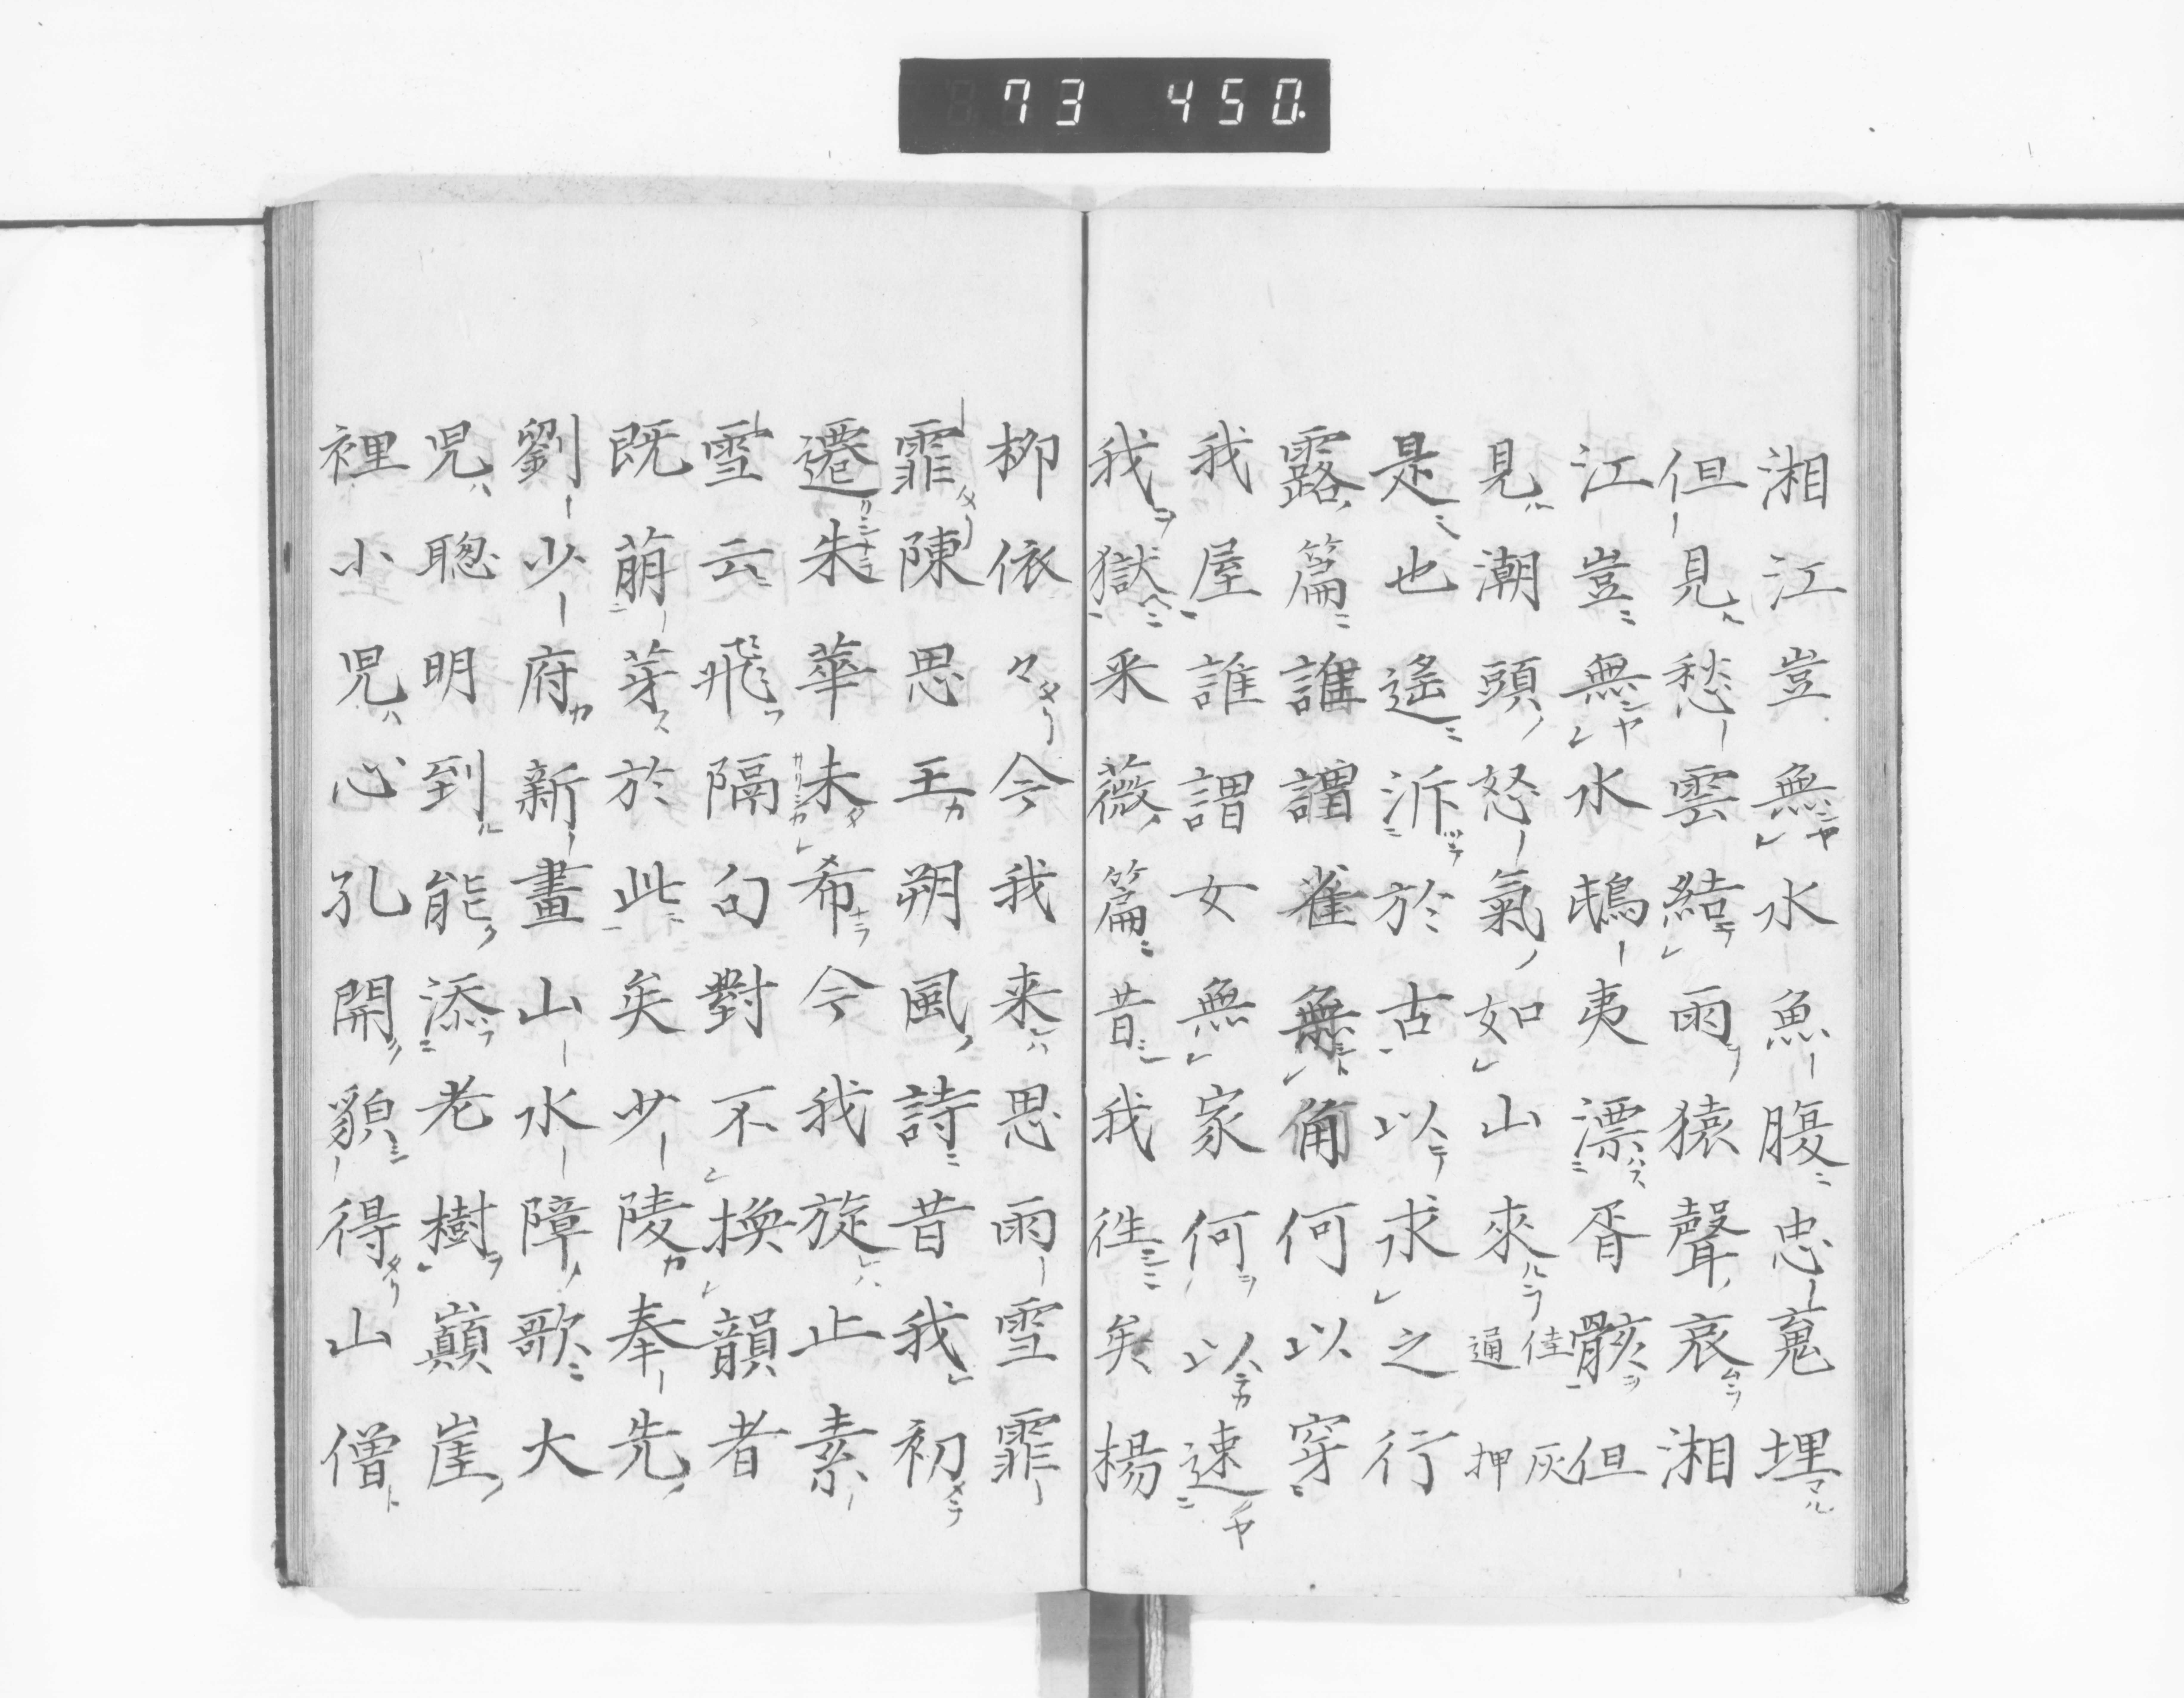 73 450.
湘江豈無水魚腹忠䰟埋
但見愁雲結雨猿聲哀湘
江豈無水鴟夷漂胥骸但
見潮頭怒氣如山來佳灰通押
是也遙泝於古以求之行
露篇誰謂雀無角何以穿
我屋誰謂女無家何以速
我獄采薇篇昔我徃矣楊
栁依々今我来思雨雪霏
霏陳思王朔風詩昔我初
遷朱華未希今我旋止素
雪云飛隔句對不換韻者
既萠芽於此矣少陵奉先
劉少府新畫山水障歌大
児聰明到能添老樹巔崖
裡小児心孔開貌得山僧